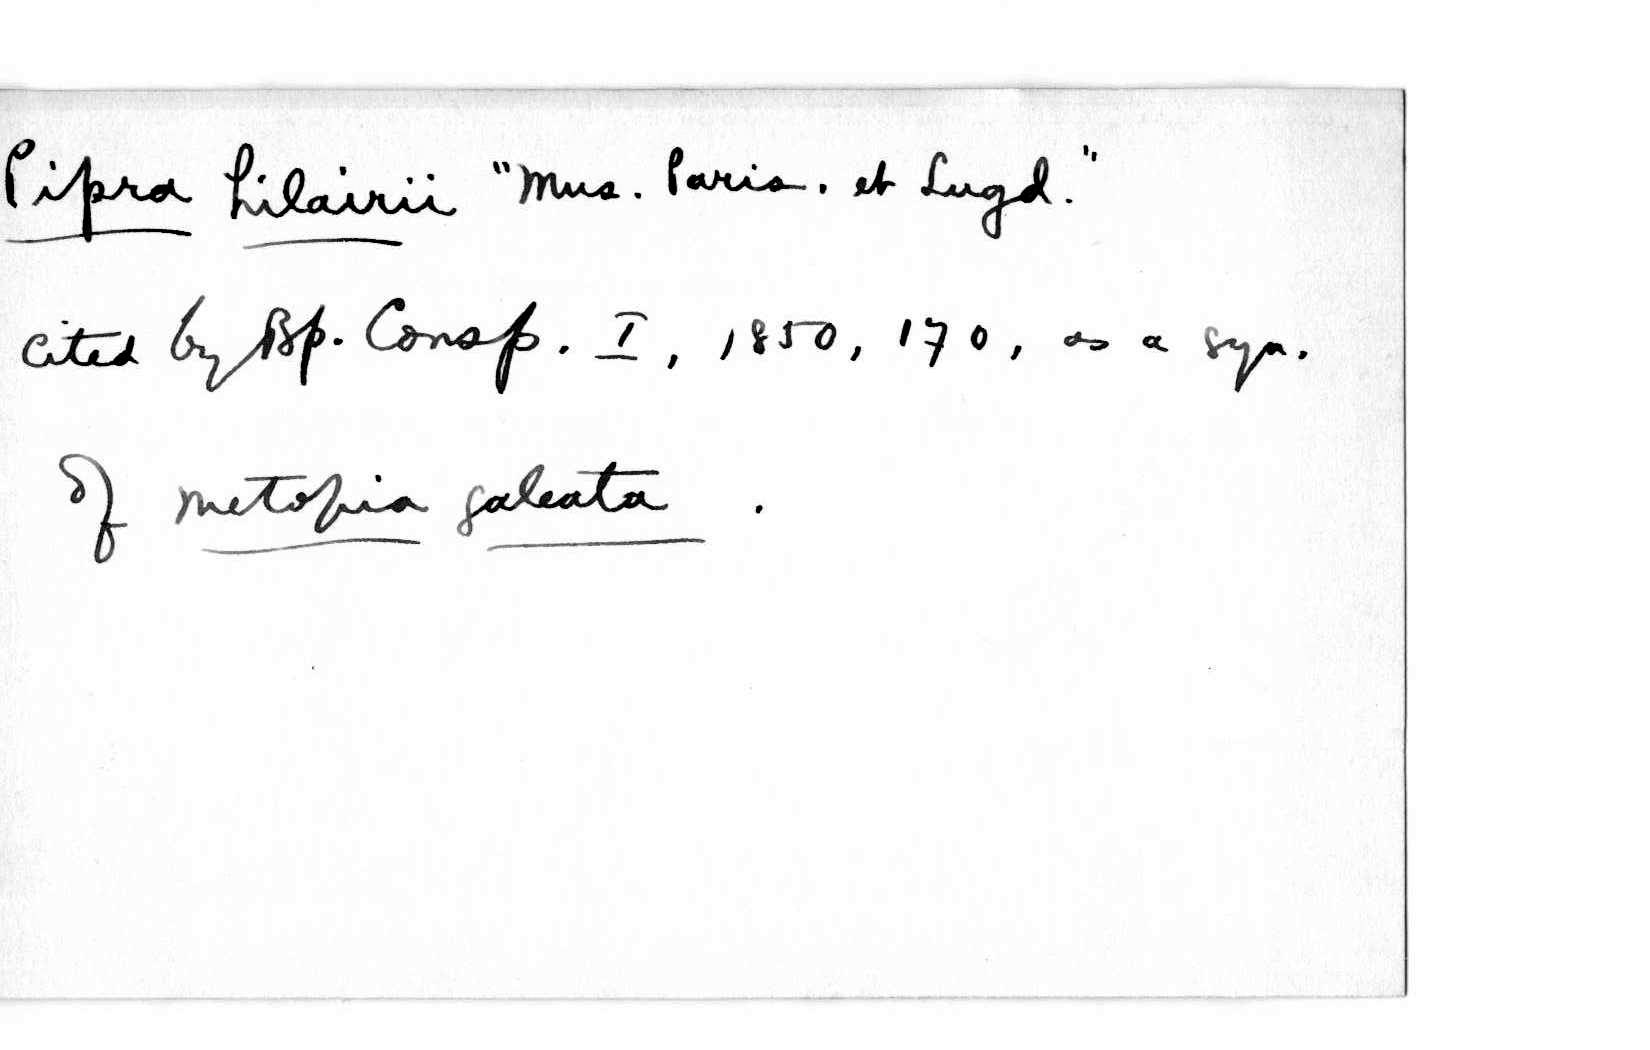 Pipra hilairii "Mus. Paris. et Lugd."
cited by Bp. Consp. I, 1850, 170, as a syn.
of Metopia galeata.